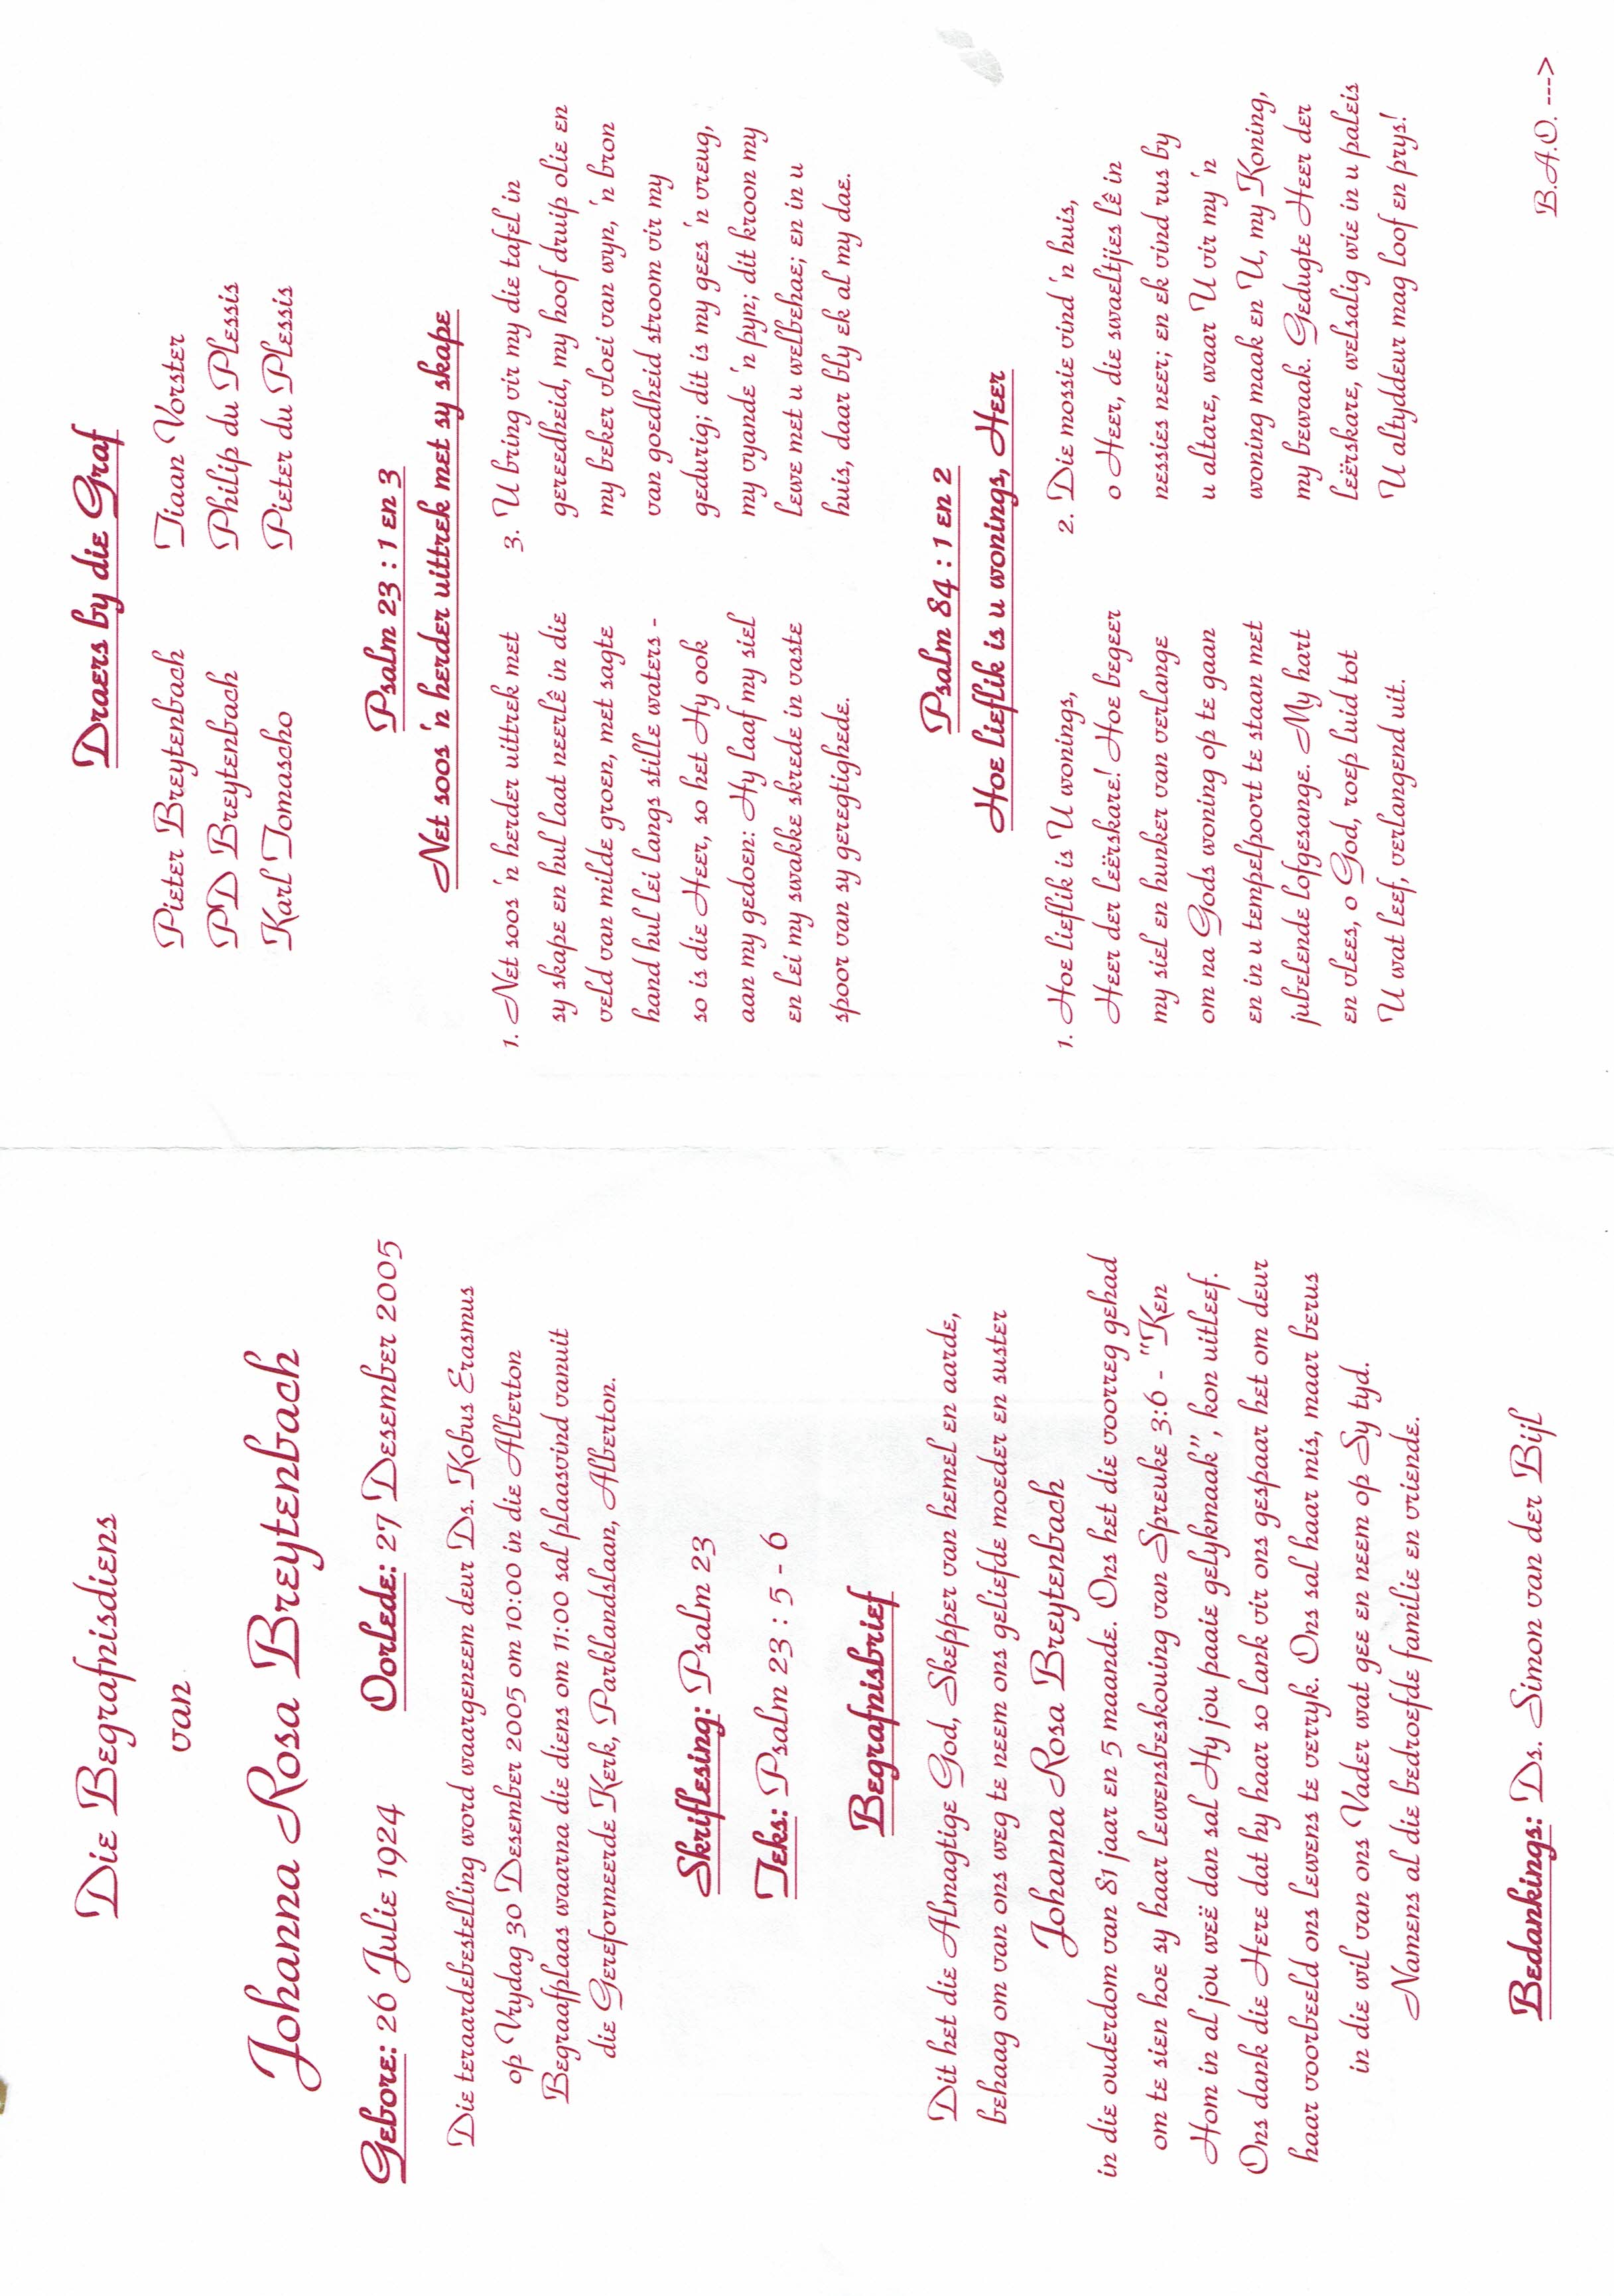 Die Begrafnisdiens
van
Johanna Rosa Breytenbach
Gebore: 26 Julie 1924 Oorlede: 27 Desember 2005
Die teraardebestelling word waargeneem deur Ds. Kobus Erasmus
op Vrydag 30 Desember 2005 om 10:00 in die Alberton
Begraafplaas waarna die diens om 11:00 sal plaasvind vanuit
die Gereformeerde Kerk, Parklandslaan, Alberton.
Skriflesing: Psalm 23
Teks: Psalm 23 : 5 - 6
Begrafnisbrief
Dit het die Almagtige God, Skepper van hemel en aarde,
behaag om van ons weg te neem ons geliefde moeder en suster
Johanna Rosa Breytenbach
in die ouderdom van 81 jaar en 5 maande. Ons het die voorreg gehad
om te sien hoe sy haar lewensbeskouing van Spreuke 3:6 - "Ken
Hom in al jou weë dan sal Hy jou paaie gelykmaak", kon uitleef.
Ons dank die Here dat hy haar so lank vir ons gespaar het om deur
haar voorbeeld ons lewens te verryk. Ons sal haar mis, maar berus
in die wil van ons Vader wat gee en neem op Sy tyd.
Namens al die bedroefde familie en vriende.
Bedankings: Ds. Simon van der Bijl
Draers by die Graf
Pieter Breytenbach Tiaan Vorster
PD Breytenbach Philip du Plessis
Karl Tomascho Pieter du Plessis
Psalm 23 : 1 en 3
Net soos 'n herder uittrek met sy skape
1. Net soos 'n herder uittrek met
sy skape en hul laat neerlê in die
veld van milde groen, met sagte
hand hul lei langs stille waters -
so is die Heer, so het Hy ook
aan my gedoen: Hy laaf my siel
en lei my swakke skrede in vaste
spoor van sy geregtighede.
3. U bring vir my die tafel in
gereedheid, my hoof druip olie en
my beker vloei van wyn, 'n bron
van goedheid stroom vir my
gedurig; dit is my gees 'n vreug,
my vyande 'n pyn; dit kroon my
lewe met u welbehae; en in u
huis, daar bly ek al my dae.
Psalm 84 : 1 en 2
Hoe lieflik is u wonings, Heer
1. Hoe lieflik is U wonings,
Heer der leërskare! Hoe begeer
my siel en hunker van verlange
om na Gods woning op te gaan
en in u tempelpoort te staan met
jubelende lofgesange. My hart
en vlees, o God, roep luid tot
U wat leef, verlangend uit.
2. Die mossie vind 'n huis,
o Heer, die swaeltjies lê in
nessies neer; en ek vind rus by
u altare, waar U vir my 'n
woning maak en U, my Koning,
my bewaak. Gedugte Heer der
leërskare, welsalig wie in u paleis
U altyddeur mag loof en prys!
B.A.O. --->